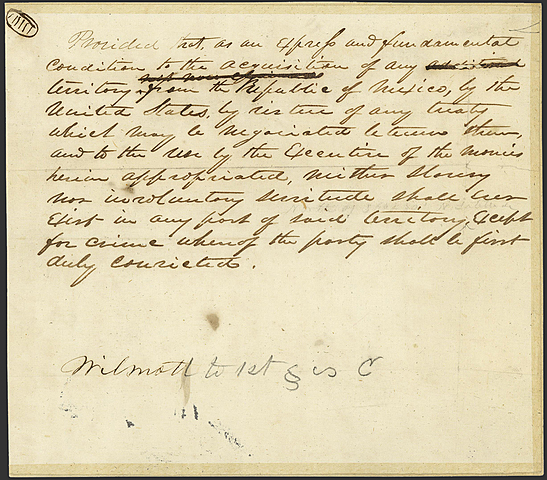 Provided that, as an express and fundamental
condition to the acquisition of any
territory from the Republic of Mexico, by the
United States, by virtue of any treaty
which may be negociated between them,
and to the use by the Executive of the monies
herein appropriated, neither slavery
nor involuntary servitude shall ever
exist in any part of said territory, except
for crime whereof the party shall be first
duly convicted.
Wilmott to 1st § is C